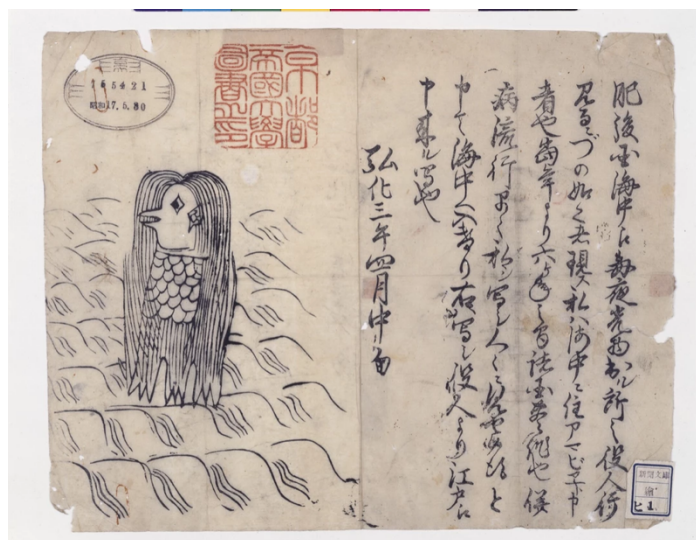 肥後国海中え毎夜光物出ル所之役人行
見るニづの如く者現ス私ハ海中ニ住アマビヱト申
者也当年より六ケ年之間諸国豊作也併
病流行早々私ヲ写シ人々ニ見せ候得と
申て海中へ入けり右写シ役人より江戸え
申来ル写也
弘化三年四月中旬
京都
帝國大學
圖書之印
昭和17.5.30
新聞文庫
繪
ヒ 1